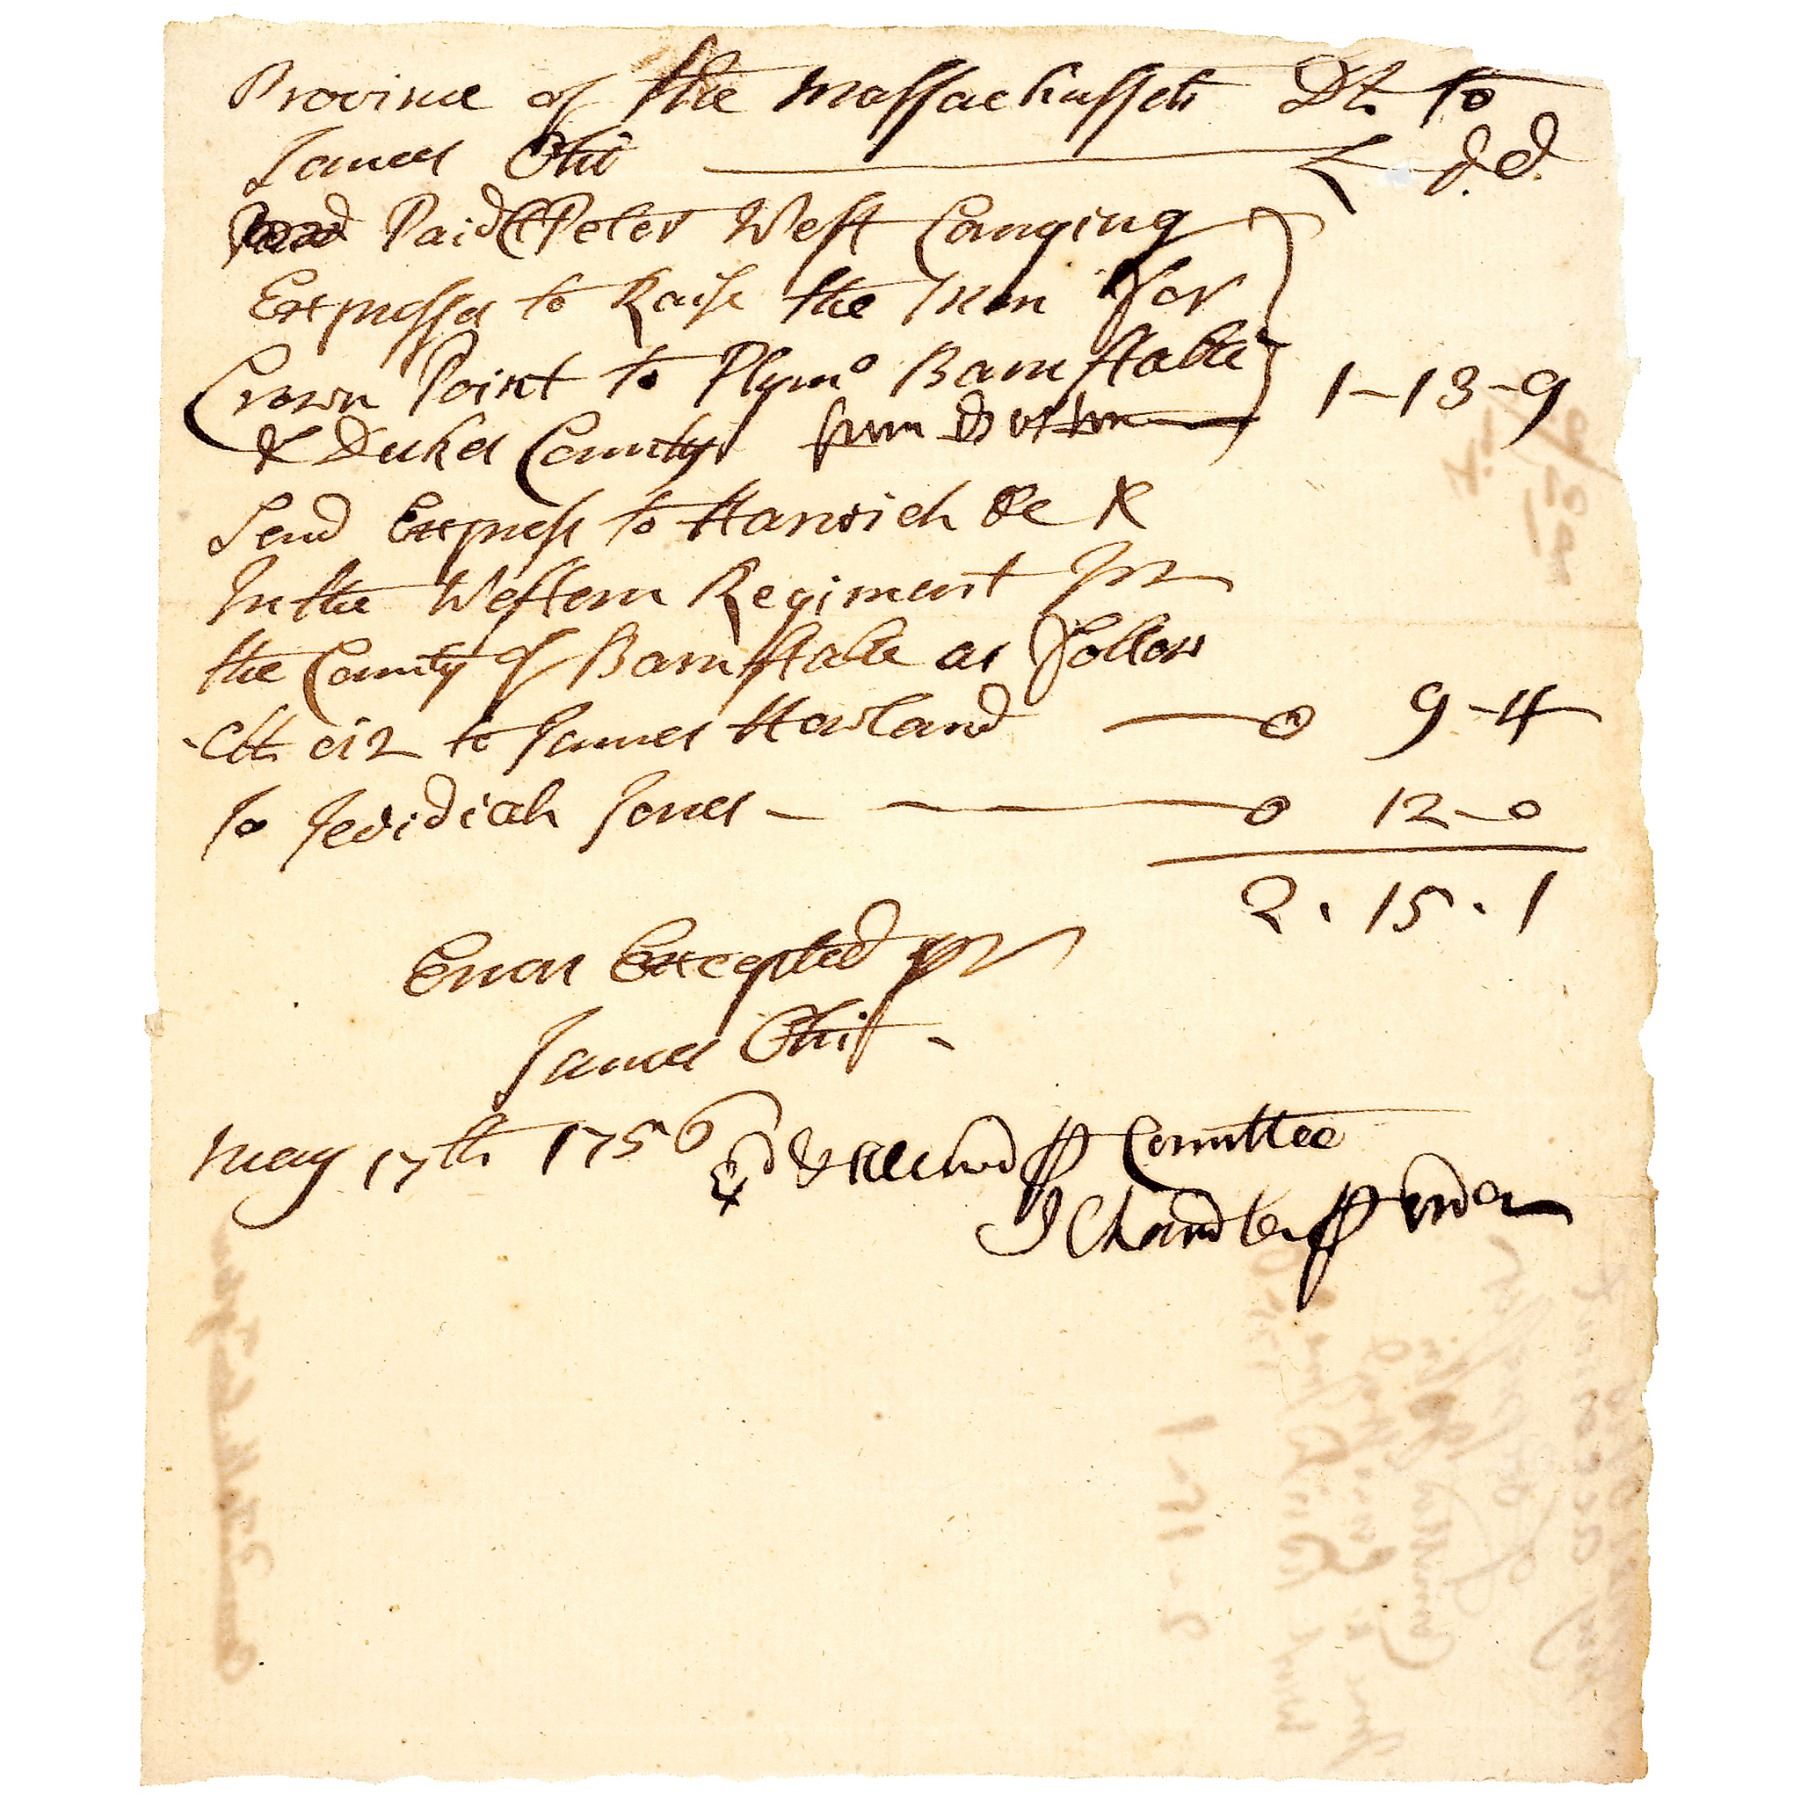 Province of the Massachussets Dr. to
James Otis ——— £ s. d.
Paid Peter West Carrying
Expresses to Raise the Men For
Crown Point to Plymo Barnstable
& Dukes County from Boston 1-13-9
Send Express to Harwich &c &
In the Western Regiment In
the County of Barnstable as Follow
viz to James Howland ——— 0 9-4
To Jedidiah Jones — ——— 0 12-0
2.15.1
Errors Excepted pr
James Otis -
May 17th 1756 Exd & allowed pr Comittee
J Chandler pr order